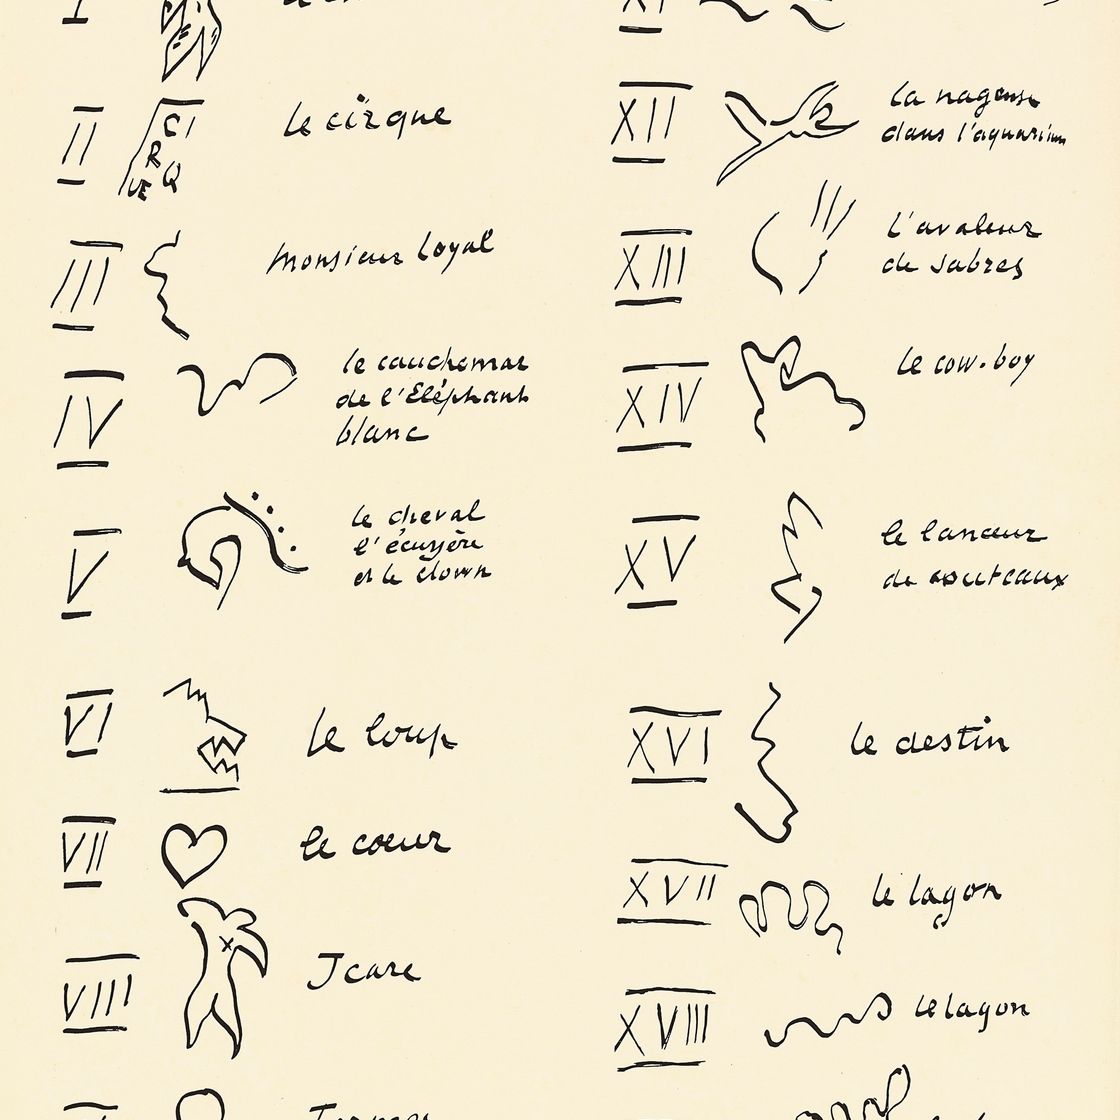 I
II
CI
R
Q
UE
le cirque
III
monsieur loyal
IV
le cauchemar
de l'Eléphant
blanc
V
le cheval
l'écuyère
et le clown
VI
le loup
VII
le coeur
VIII
Icare
XI
XII
la nageuse
dans l'aquarium
XIII
L'avaleur
de sabres
XIV
le cow-boy
XV
le lanceur
de couteaux
XVI
le destin
XVII
le lagon
XVIII
le lagon